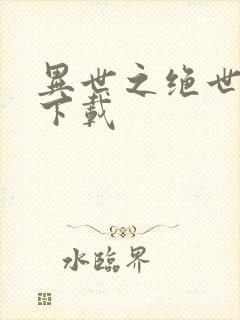 異世之绝世
下載
水臨界